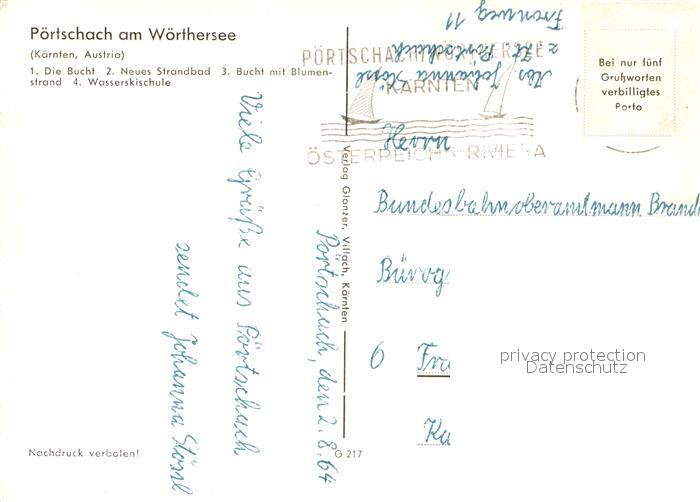 Pörtschach am Wörthersee
(Kärnten, Austria)
1. Die Bucht 2. Neues Strandbad 3. Bucht mit Blumen-
strand 4. Wasserskischule
Viele Grüße aus Pörtschach
sendet Johanna Stössl
Pörtschach, den 2.8.64
Nachdruck verboten!
Verlag Glanzer, Villach, Kärnten
G 217
Abs. Johanna Stössl
z. Zt. Pörtschach
Fronweg 11
PÖRTSCHACH WÖRTHERSEE
KÄRNTEN
ÖSTERREICHS RIVIERA
Bei nur fünf
Grußworten
verbilligtes
Porto
Herrn
Bundesbahnoberamtmann Brand
Bürog
6 Fra
Ka
privacy protection
Datenschutz